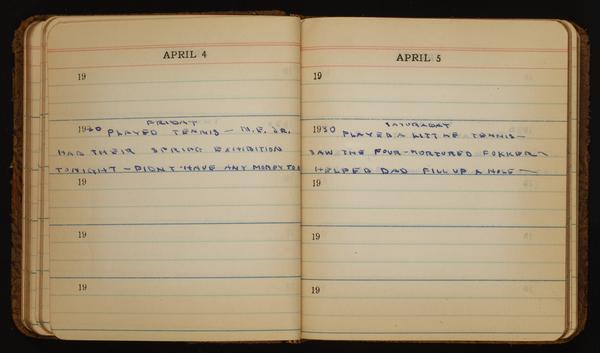 APRIL 4
19
FRIDAY
1930 PLAYED TENNIS – N.E. JR.
HAD THEIR SPRING EXHIBITION
TONIGHT – DIDN'T HAVE ANY MONEY TO
19
19
19
APRIL 5
19
SATURDAY
1930 PLAYED A LITTLE TENNIS –
SAW THE FOUR-MORTORED FOKKER –
HELPED DAD FILL UP A HOLE –
19
19
19